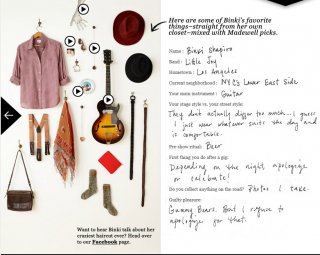 Here are some of Binki's favorite
things—straight from her own
closet—mixed with Madewell picks.
Name: Binki Shapiro
Band: Little Joy
Hometown: Los Angeles
Current neighborhood: NYC's Lower East Side
Your main instrument: Guitar
Your stage style vs. your street style:
They don't actually differ too much... I guess
I just wear whatever suits the day and
is comfortable.
Pre-show ritual: Beer
First thing you do after a gig:
Depending on the night, apologize
or celebrate!
Do you collect anything on the road? Photos I take.
Guilty pleasure:
Gummy Bears. But I refuse to
apologize for that.
Want to hear Binki talk about her
craziest haircut ever? Head over
to our Facebook page.